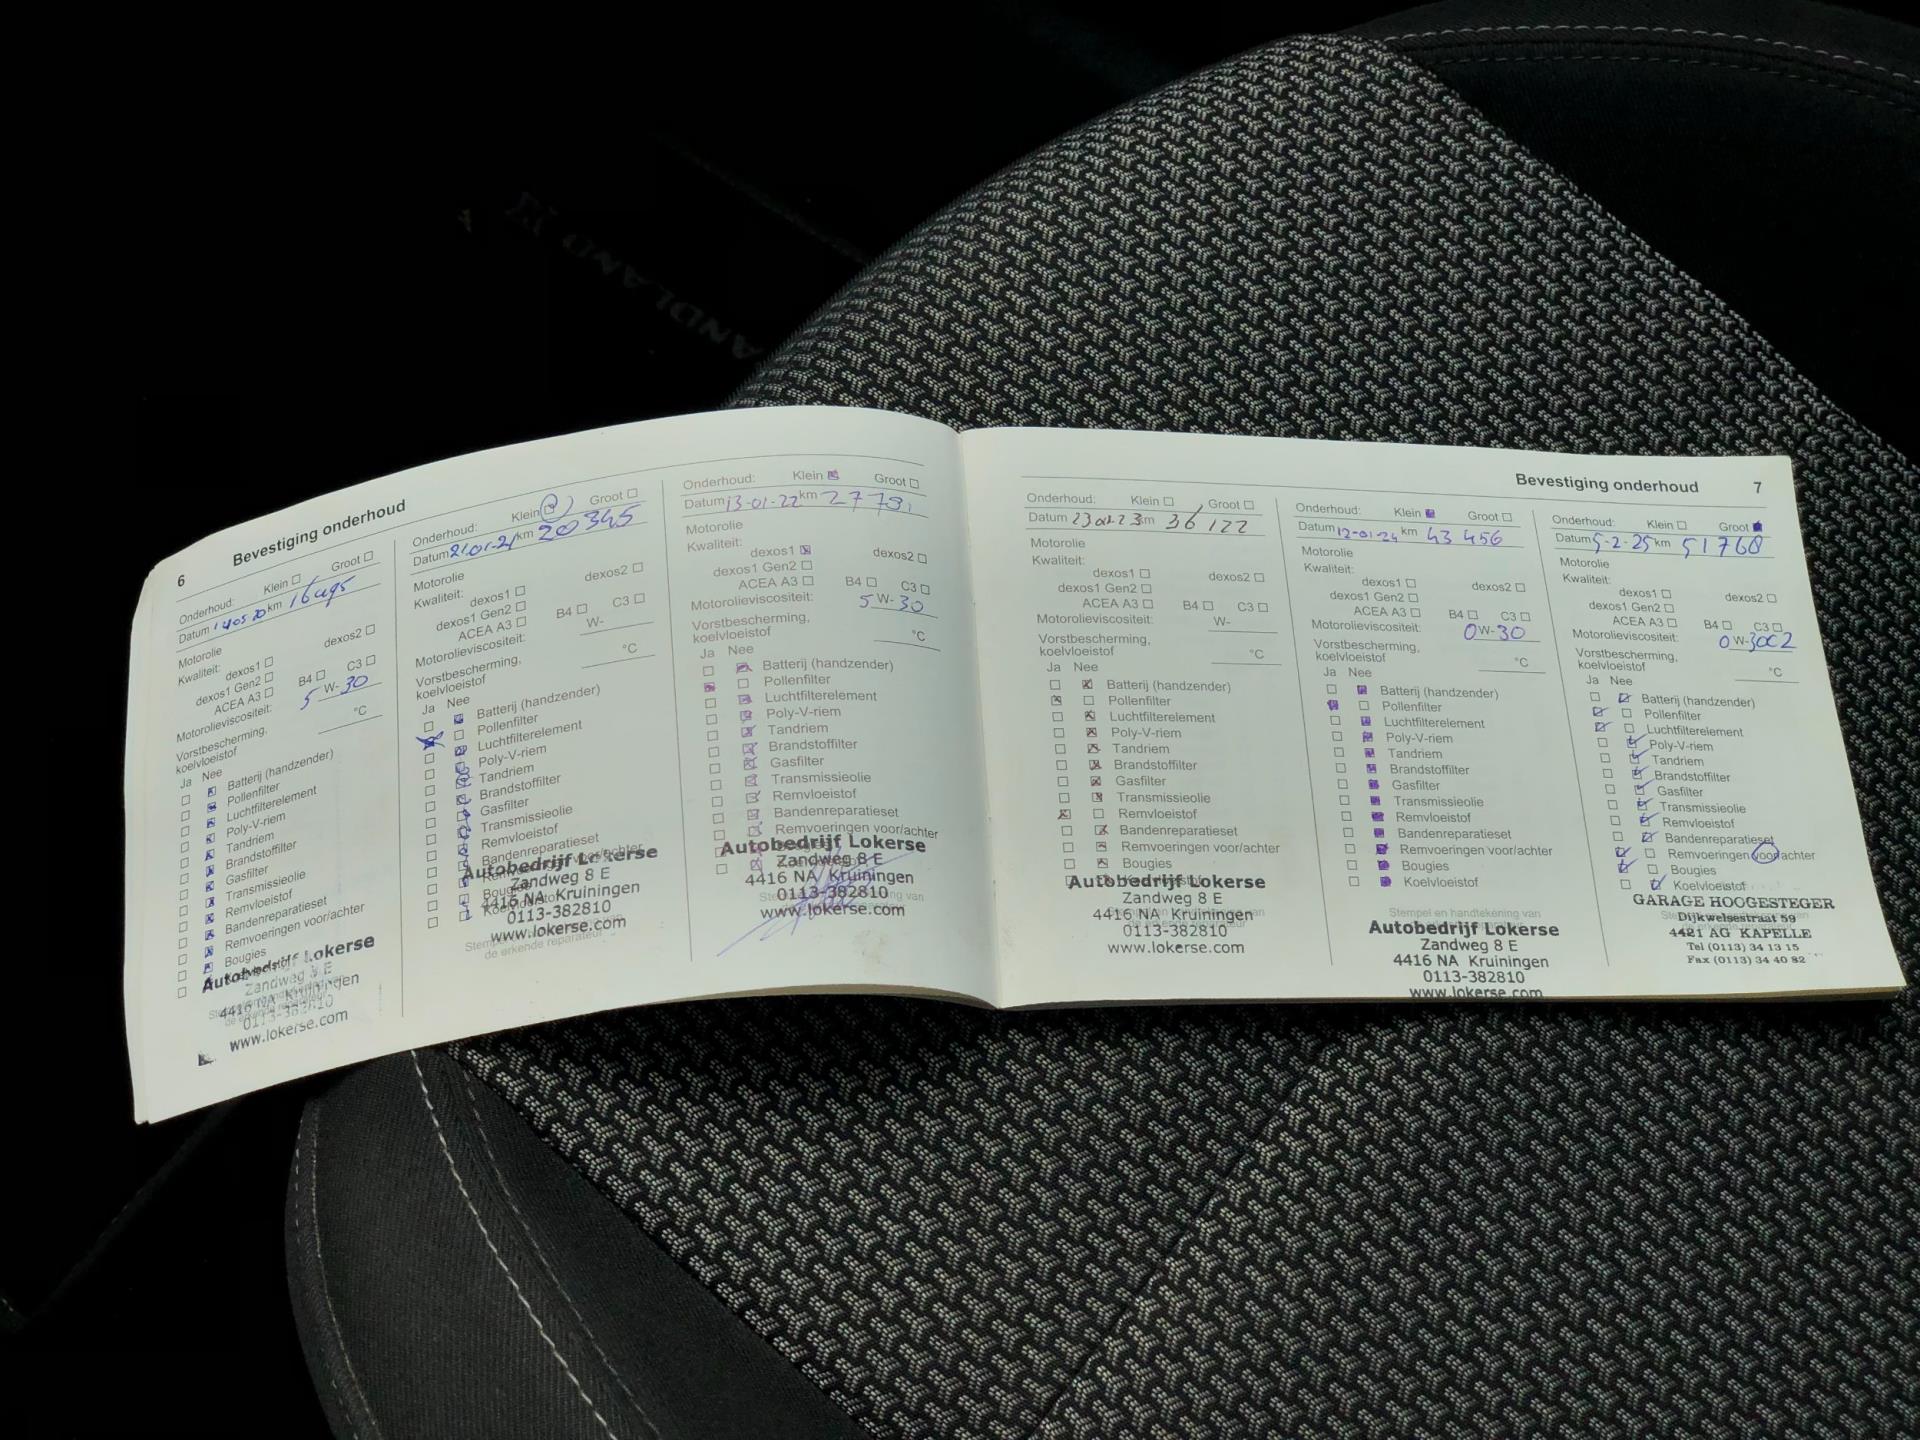 6 Bevestiging onderhoud
Onderhoud: Klein Groot
Datum 14 05 20 km 16495
Motorolie
Kwaliteit:
dexos1 dexos2
dexos1 Gen2
ACEA A3 B4 C3
Motorolieviscositeit: 5 W- 30
Vorstbescherming,
koelvloeistof °C
Ja Nee
Batterij (handzender)
Pollenfilter
Luchtfilterelement
Poly-V-riem
Tandriem
Brandstoffilter
Gasfilter
Transmissieolie
Remvloeistof
Bandenreparatieset
Remvoeringen voor/achter
Bougies
Autobedrijf Lokerse
Zandweg 8 E
4416 NA Kruiningen
0113-382810
www.lokerse.com
Onderhoud: Klein Groot
Datum 21-01-21 km 20345
Motorolie
Kwaliteit:
dexos1 dexos2
dexos1 Gen2
ACEA A3 B4 C3
Motorolieviscositeit: W-
Vorstbescherming,
koelvloeistof °C
Ja Nee
Batterij (handzender)
Pollenfilter
Luchtfilterelement
Poly-V-riem
Tandriem
Brandstoffilter
Gasfilter
Transmissieolie
Remvloeistof
Bandenreparatieset
Remvoeringen voor/achter
Bougies
Koelvloeistof
Autobedrijf Lokerse
Zandweg 8 E
4416 NA Kruiningen
0113-382810
www.lokerse.com
Stempel en handtekening van
de erkende reparateur
Onderhoud: Klein Groot
Datum 13-01-22 km
Motorolie
Kwaliteit:
dexos1 dexos2
dexos1 Gen2
ACEA A3 B4 C3
Motorolieviscositeit: 5 W- 30
Vorstbescherming,
koelvloeistof °C
Ja Nee
Batterij (handzender)
Pollenfilter
Luchtfilterelement
Poly-V-riem
Tandriem
Brandstoffilter
Gasfilter
Transmissieolie
Remvloeistof
Bandenreparatieset
Remvoeringen voor/achter
Bougies
Autobedrijf Lokerse
Zandweg 8 E
4416 NA Kruiningen
0113-382810
www.lokerse.com
Bevestiging onderhoud 7
Onderhoud: Klein Groot
Datum 23 01 23 km 36 122
Motorolie
Kwaliteit:
dexos1 dexos2
dexos1 Gen2
ACEA A3 B4 C3
Motorolieviscositeit: W-
Vorstbescherming,
koelvloeistof °C
Ja Nee
Batterij (handzender)
Pollenfilter
Luchtfilterelement
Poly-V-riem
Tandriem
Brandstoffilter
Gasfilter
Transmissieolie
Remvloeistof
Bandenreparatieset
Remvoeringen voor/achter
Bougies
Autobedrijf Lokerse
Zandweg 8 E
4416 NA Kruiningen
0113-382810
www.lokerse.com
Onderhoud: Klein Groot
Datum 12-01-24 km 43 456
Motorolie
Kwaliteit:
dexos1 dexos2
dexos1 Gen2
ACEA A3 B4 C3
Motorolieviscositeit: 0 W- 30
Vorstbescherming,
koelvloeistof °C
Ja Nee
Batterij (handzender)
Pollenfilter
Luchtfilterelement
Poly-V-riem
Tandriem
Brandstoffilter
Gasfilter
Transmissieolie
Remvloeistof
Bandenreparatieset
Remvoeringen voor/achter
Bougies
Koelvloeistof
Stempel en handtekening van
Autobedrijf Lokerse
Zandweg 8 E
4416 NA Kruiningen
0113-382810
www.lokerse.com
Onderhoud: Klein Groot
Datum 5-2-25 km 51760
Motorolie
Kwaliteit:
dexos1 dexos2
dexos1 Gen2
ACEA A3 B4 C3
Motorolieviscositeit: 0 W- 30C2
Vorstbescherming,
koelvloeistof °C
Ja Nee
Batterij (handzender)
Pollenfilter
Luchtfilterelement
Poly-V-riem
Tandriem
Brandstoffilter
Gasfilter
Transmissieolie
Remvloeistof
Bandenreparatieset
Remvoeringen voor/achter
Bougies
Koelvloeistof
GARAGE HOOGESTEGER
Dijkwelsestraat 59
4421 AG KAPELLE
Tel (0113) 34 13 15
Fax (0113) 34 40 82